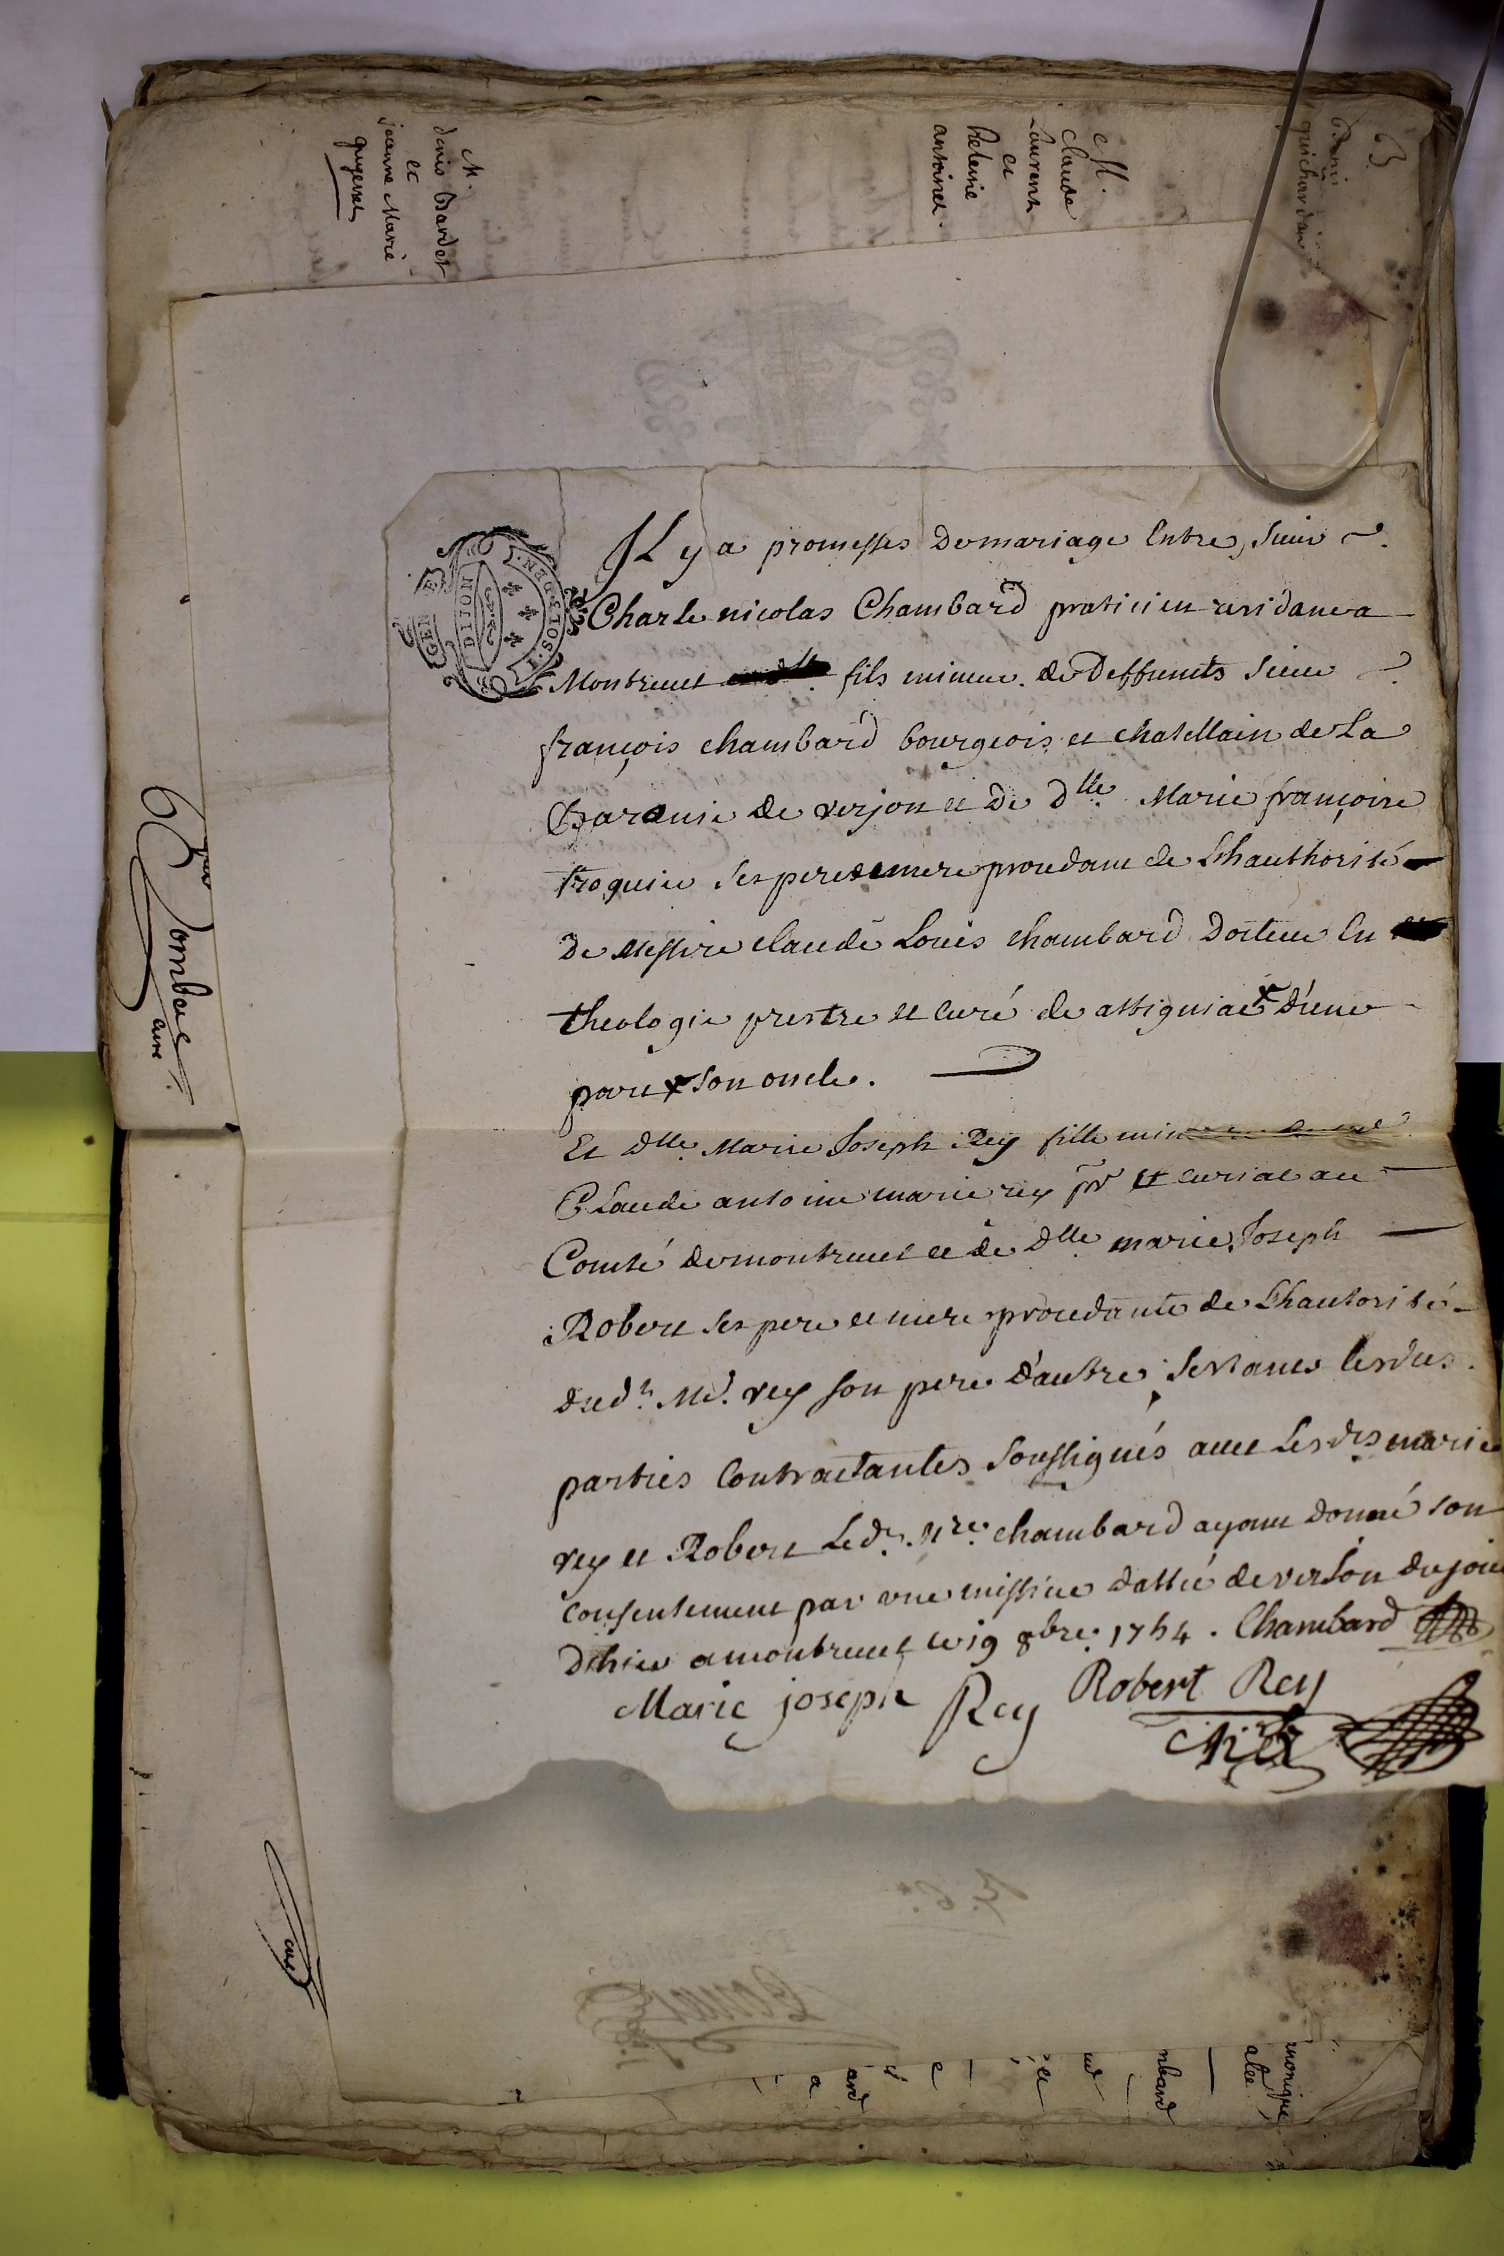 M.
denis Bardet
et
jeanne Marie
guyenet
M.
Claude
Laurent
et
antoinet.
63
guichardan
GEN. DE
DIJON
I. SOLS. GEN.
IL y a promesses de mariage Entre, Sieur
Charle nicolas Chambard praticien residant a
Montrevel fils mineur de Deffunts Sieur
françois chambard bourgeois et chatellain de La
Baronie de verjon et de Dlle. Marie françoise
froquier ses pere et mere procedant de Lhauthorité
de Messire claude Louis chambard Docteur En
theologie prestre et curé de attigniat d'une
part x son oncle.
Et Dlle. Marie Joseph Rey fille
Claude antoine marie rey pr et curial au
Comté de montrevel et de Dlle marie Joseph
Robert ses pere et mere procedante de Lhautorité
dud.t Me. rey son pere d'autre, Sestants lesdites
parties Contractantes soussignés avec Lesdts marie
rey et Robert Led.t Mre. chambard ayant donné son
consentement par une missive dattée de verjon du jour
dhier a montrevel le 19 8bre. 1764. Chambard
Marie joseph Rey Robert Rey
curé
monique
nbard
ard
a